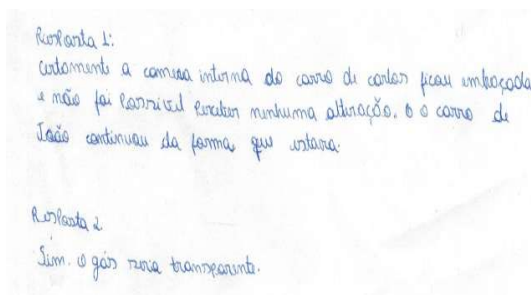 Resposta 1:
certamente a camera interna do carro de carlos ficou embaçada
e não foi possivel perceber nenhuma alteração. o o carro de
João continuou da forma que estava.
Resposta 2
Sim. o gás seria transparente.